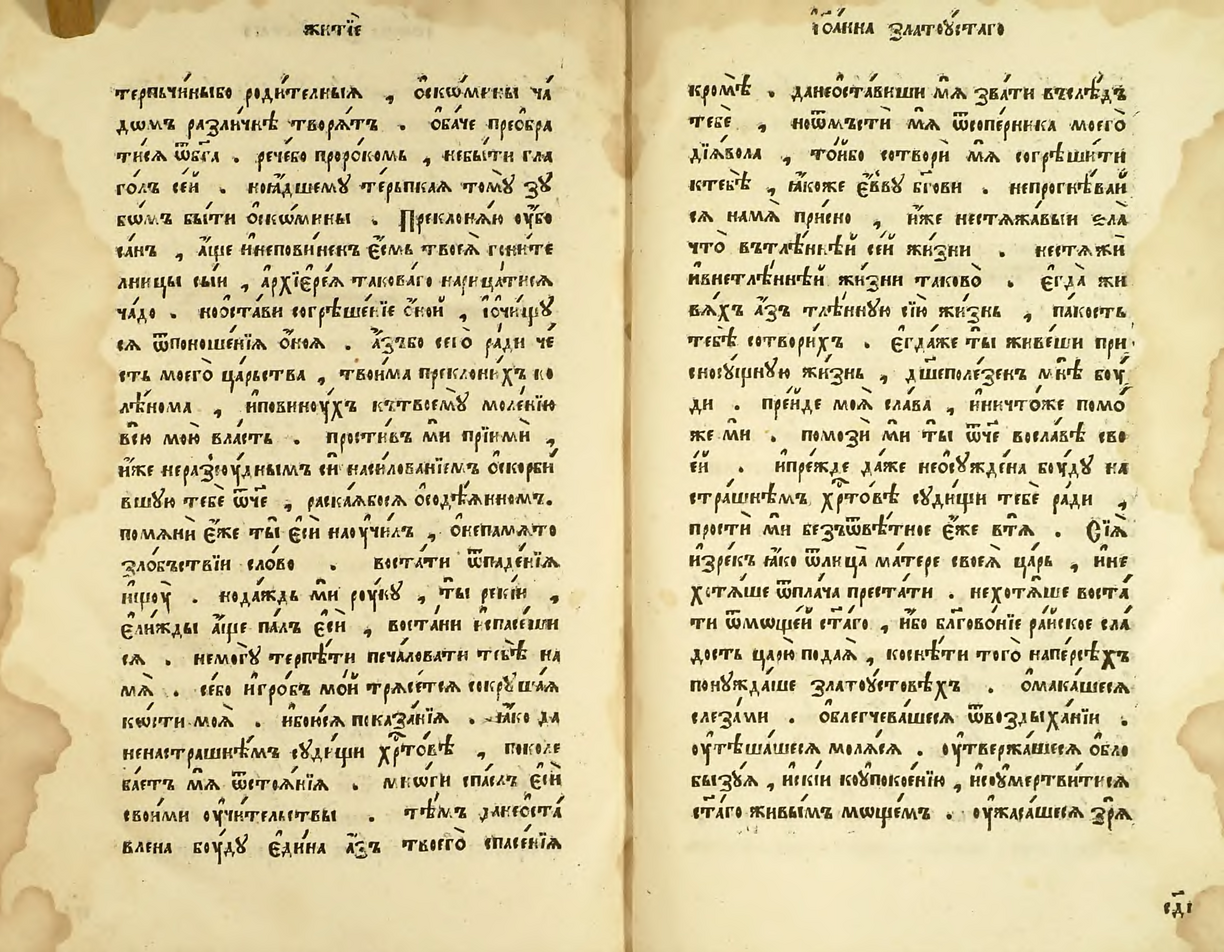 житїе
терпъчиныбо родителныѧ , ѡскѡмины ча́
дѡмъ разли́чнѣ творѧ́тъ . ѻба́че преѡбра
ти́сѧ ѿбг҃а . рече́бо проро́комь , небы́ти гла
го́лъ сей . ноꙗ́дшемꙋ те́рьпкаѧ томꙋ̀ зꙋ
бѡ́мъ бы́ти ѡскѡ́мины . Преклонѧ́ю оу҆́бо
са́нъ , а҆́ще и҆непови́ненъ є҆́смь твоеѧ̀ гони́те
лницы сы́и , а҆рхїере́ѧ такова́го нарица́тисѧ
ча́до . ноѡста́ви согрѣше́нїе ѻ҆но́й , і҆ѡчи́щꙋ
сѧ ѿпоноше́нїѧ ѻ҆ноѧ̀ . а҆́зъбо сего̀ ра́ди че́
сть моего̀ ца́рьства , твои́ма преклони́хъ ко
лѣ́нома , и҆повиноу́хъ кътвоемꙋ̀ моле́нїю
всю̀ мою̀ вла́сть . прости́въ мѝ прїимѝ ,
и҆́же неразсоу́днымъ сѝ наси́лованїемъ ѡ҆скорби́
вшую тебѐ ѿч҃е , раска́ѧбосѧ ѡ҆содѣ́ѧнномъ.
помѧнѝ є҆́же ты̀ є҆сѝ наоучи́лъ , ѻ҆непамѧ́то
ѕло́бьствїи сло́во . воста́ти ѿпаде́нїѧ
и҆щоу̀ . нода́ждь мѝ роу́кꙋ , ты̀ реклъ̀ ,
є҆ли́жды а҆́ще па́лъ є҆сѝ , воста́ни и҆спасе́ши
сѧ . немогꙋ̀ терпѣ́ти печа́ловати тебѣ̀ на
мѧ̀ . се́бо и҆гро́бъ мо́й трѧсе́тсѧ сокрꙋша́ѧ
кѡ́сти моѧ̀ . и҆бою́сѧ показа́нїѧ . ꙗ҆́ко да
ненастра́шнѣмъ сꙋди́щи хр҇то́вѣ , поколе́
ба́етъ мѧ̀ ѿстоѧ́нїѧ . мнѡ́ги спа́слъ є҆сѝ
свои́ми оу҆чи́тельствы . тѣ́мъ данеѡста́
влена боу́дꙋ є҆ди́на а҆́зъ твоего̀ спасе́нїѧ
і҆ѡа́нна златоу́стаго
кромѣ̀ . данеѡста́виши мѧ̀ зва́ти въслѣ́дъ
тебѐ , ноѿмъстѝ мѧ̀ ѿсопе́рника моего̀
дїѧ́вола , то́йбо сотворѝ мѧ̀ согрѣши́ти
ктебѣ̀ , ꙗ҆́коже є҆́ввꙋ бг҃ови . непрогнѣ́вай
сѧ намѧ̀ при́сно , и҆́же нестѧжа́выи ѕла̀
что̀ вътлѣ́ннѣй сей жи́зни . нестѧжѝ
и҆внетлѣ́ннѣй жи́зни таково̀ . є҆гда̀ жи
вѧ́хъ а҆́зъ тлѣ́нную сїю̀ жи́знь , па́кость
тебѣ̀ сотвори́хъ . є҆гда́же ты̀ живе́ши при
сносу́щную жи́знь , дш҃еполе́зенъ мнѣ̀ боу́
ди . пре́йде моѧ̀ сла́ва , и҆ничто́же помо́
же мѝ . помозѝ мѝ ты̀ ѿч҃е восла́вѣ сво
е́й . и҆пре́жде да́же неѡсꙋжде́на боу́дꙋ на
стра́шнѣмъ хр҇то́вѣ сꙋди́щи тебѐ ра́ди ,
простѝ мѝ безъѿвѣ́тное є҆́же втѧ̀ . Сїѧ̀
и҆зре́къ ꙗ҆́ко ѿлица̀ ма́тере своеѧ̀ ца́рь , и҆не
хотѧ́ше ѿпла́ча преста́ти . нехотѧ́ше воста́
ти ѿмѡще́й ст҃а́го , и҆́бо блг҃ово́нїе ра́йское сла́
дость царю̀ пода́ѧ , коснѣ́ти того̀ напе́рсѣхъ
понꙋжда́ше златоу́стовѣхъ . ѻ҆мака́шесѧ
слеза́ми . ѻ҆блегчева́шесѧ ѿвоздыха́нїи .
оу҆тѣша́шесѧ молѧ́сѧ . оу҆твержа́шесѧ ѻ҆бло
бызꙋ́ѧ , и҆скїй коупокое́нїю , и҆соумертви́тисѧ
ст҃а́го живы́мъ моще́мъ . оу҆жаса́шесѧ зрѧ̀